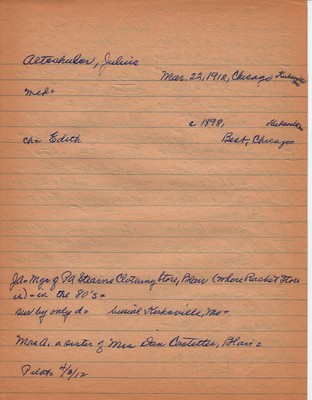 Altschuler, Julius
Mar. 22, 1912, Chicago Kirksville Mo
med=
c 1898,
ch= Edith Best, Chicago
JA= Mgr of PA Stearns Clothing Store, Blair (where Racket Store
is) = in the 80's=
sur by only d= burial Kirksville, Mo=
Mrs A. a sister of Mrs Dan Castetter, Blair=
Pilot= 4/3/12